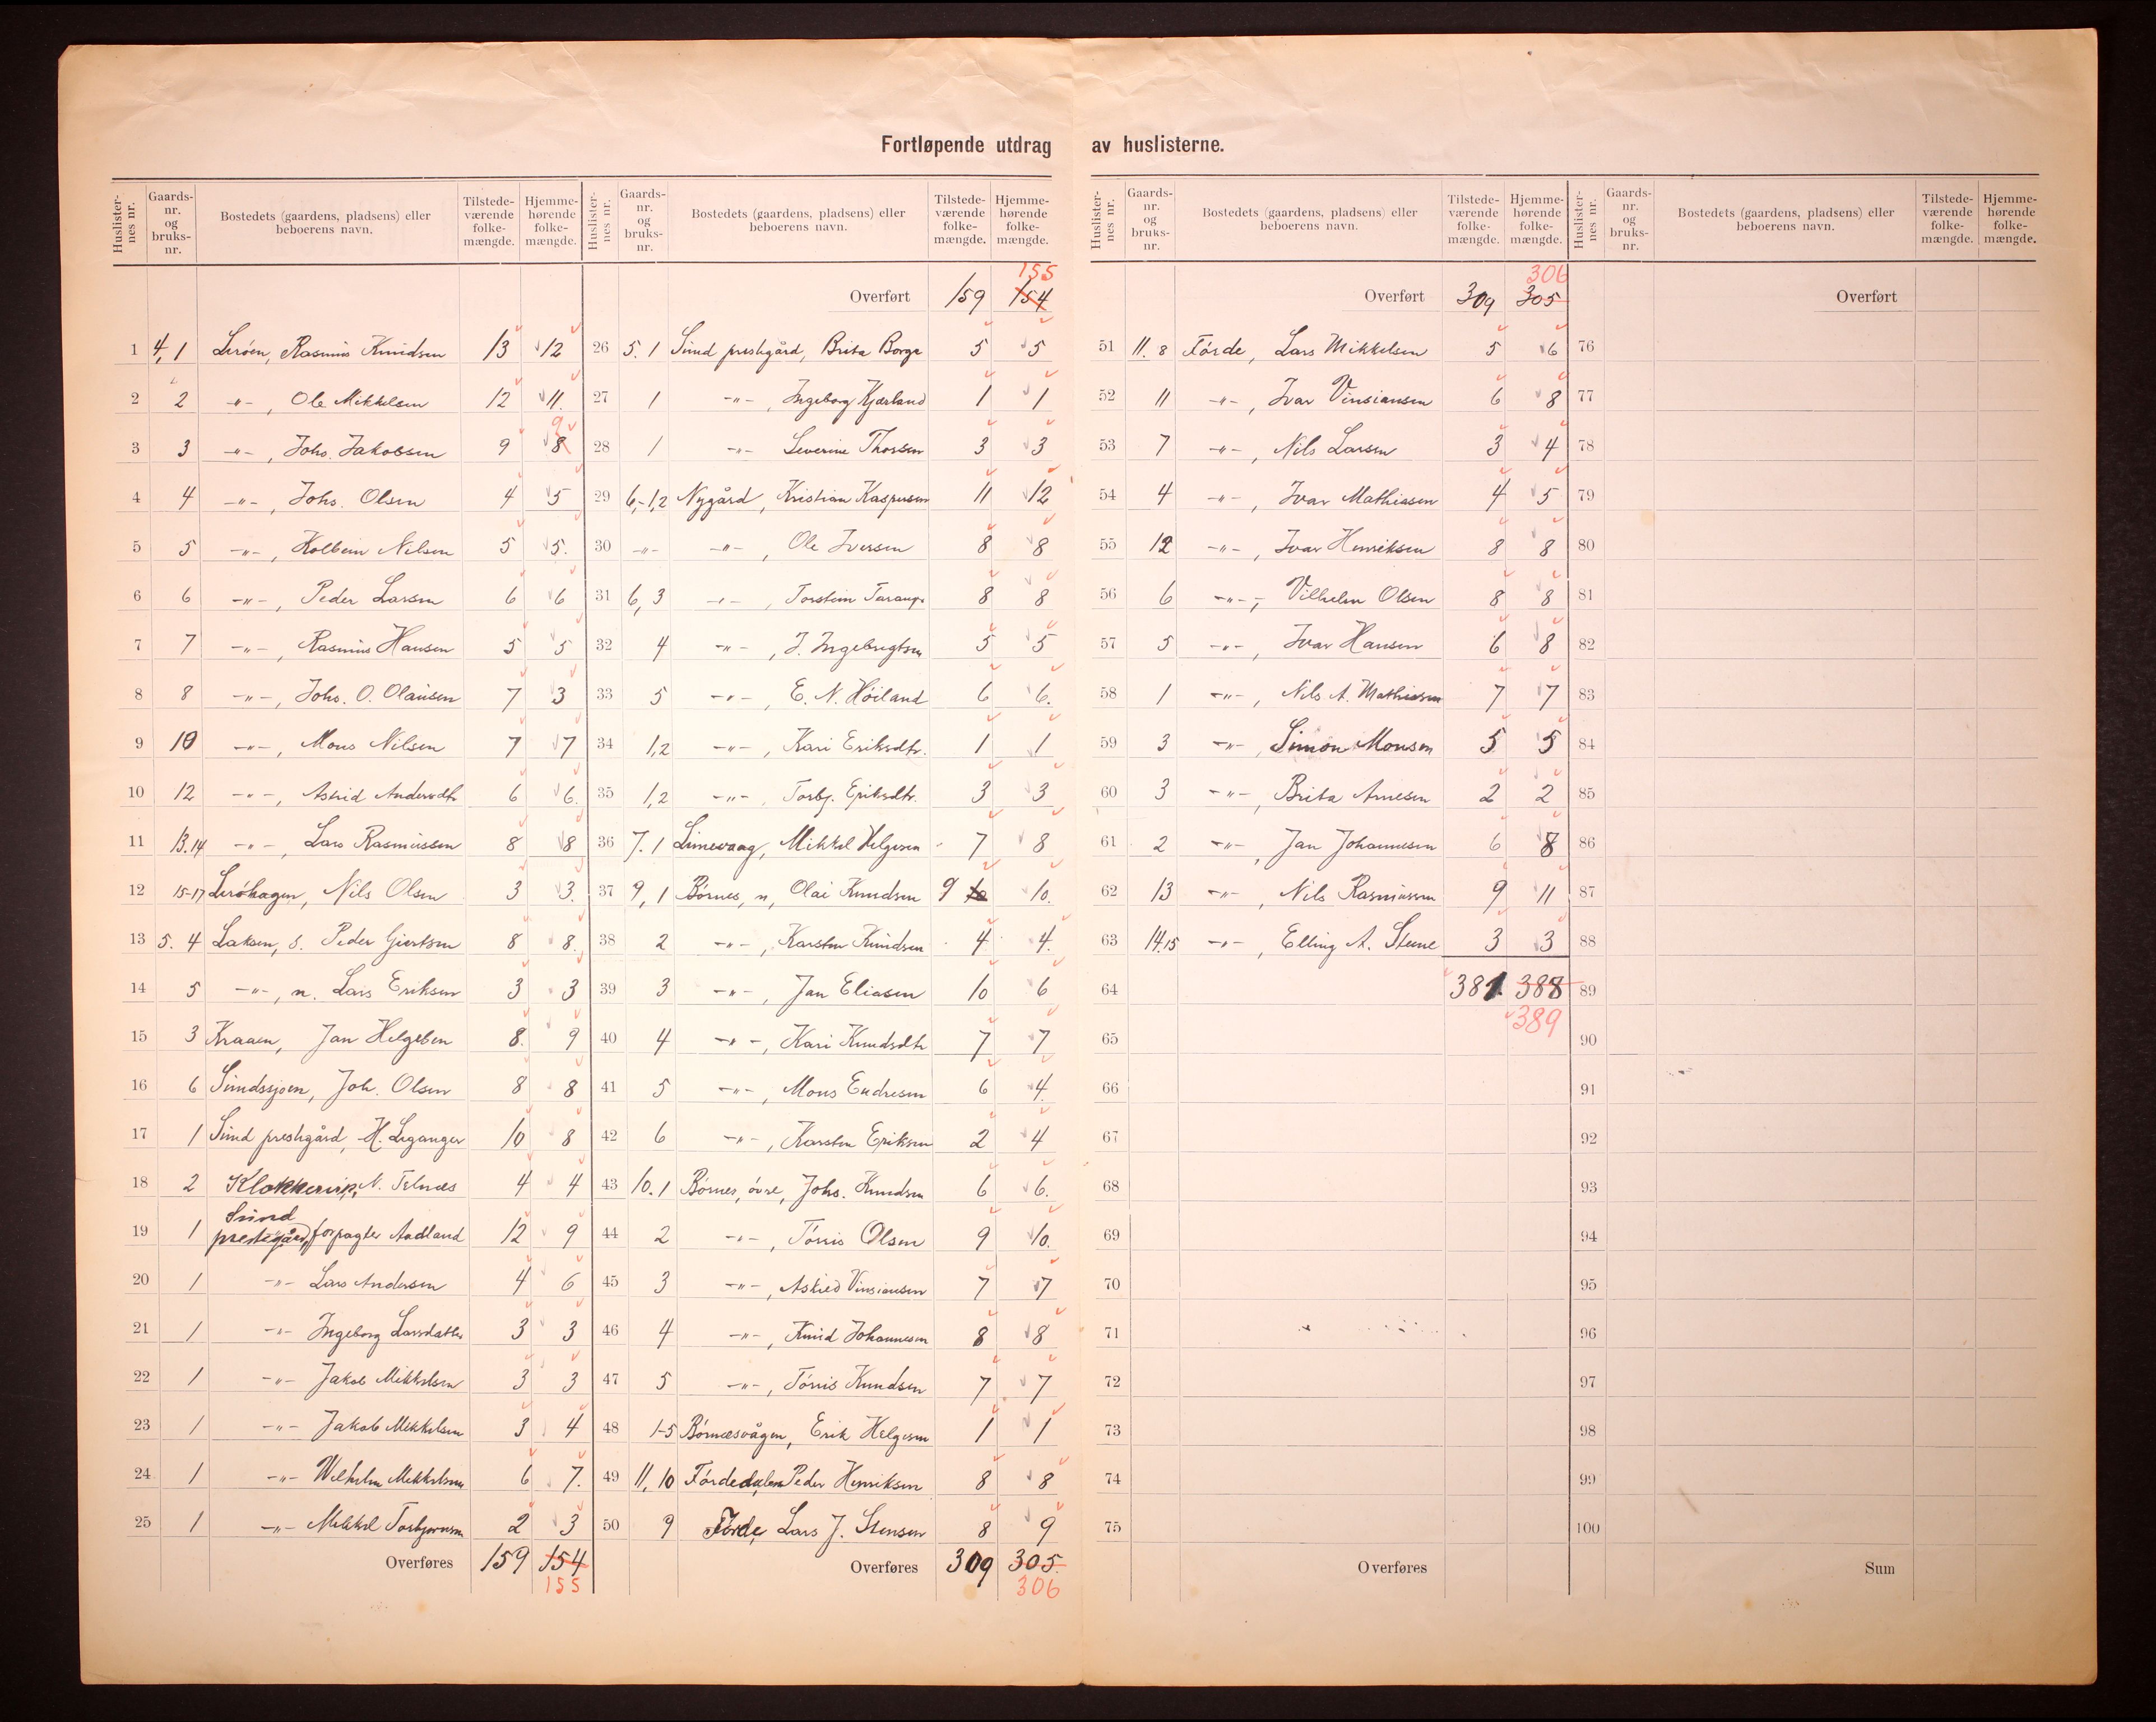 Fortløpende utdrag av huslisterne.
Huslister-nes nr. Gaards-nr. og bruks-nr. Bostedets (gaardens, pladsens) eller beboerens navn. Tilstede-værende folke-mængde. Hjemme-hørende folke-mængde.
1 4,1 Lerøen, Rasmus Knudsen 13 12
2 2 -"-, Ole Mikkelsen 12 11.
3 3 -"-, Johs. Jakobsen 9 8 9
4 4 -"-, Johs. Olsen 4 5
5 5 -"-, Kolbein Nilsen 5 5.
6 6 -"-, Peder Larsen 6 6
7 7 -"-, Rasmus Hansen 5 5
8 8 -"-, Johs. O. Olausen 7 3
9 10 -"-, Mons Nilsen 7 7
10 12 -"-, Astrid Andersdtr 6 6.
11 13.14 -"-, Lars Rasmussen 8 8
12 15-17 Lerøhagen, Nils Olsen 3 3.
13 5. 4 Laksen, s. Peder Giertsen 8 8.
14 5 -"-, n. Lars Eriksen 3 3
15 3 Kraaen, Jan Helgesen 8. 9
16 6 Sundssjøen, Joh. Olsen 8 8
17 1 Sund prestgård, H. Leganger 10 8
18 2 Klokkerip, N. Telnæs 4 4
19 1 Sund prestegård, forpagter Aadland 12 9
20 1 -"- Lars Andersen 4 6
21 1 -"- Ingeborg Larsdatter 3 3
22 1 -"- Jakob Mikkelsen 3 3
23 1 -"- Jakob Mikkelsen 3 4
24 1 -"- Wilhelm Mikkelsen 6 7.
25 1 -"- Mikkel Torbjørnsen 2 3
Overføres 159 154
155
Huslister-nes nr. Gaards-nr. og bruks-nr. Bostedets (gaardens, pladsens) eller beboerens navn. Tilstede-værende folke-mængde. Hjemme-hørende folke-mængde.
155
Overført 159 154
26 5.1 Sund prestgård, Brita Borge 5 5
27 1 -"-, Ingeborg Kjærland 1 1
28 1 -"- Severine Thorsen 3 3
29 6,-1,2 Nygård, Kristian Kaspersen 11 12
30 -"- -"-, Ole Iversen 8 8
31 6,3 -"-, Torstein Tarange 8 8
32 4 -"-, J. Ingebregtsen 5 5
33 5 -"-, E. N. Høiland 6 6.
34 1,2 -"-, Kari Eriksdtr. 1 1
35 1,2 -"-, Torbj. Eriksdtr. 3 3
36 7.1 Limevaag, Mikkel Helgesen 7 8
37 9,1 Børnes, n, Olai Knudsen 9 10 10.
38 2 -"-, Karsten Knudsen 4 4.
39 3 -"-, Jan Eliasen 10 6
40 4 -"-, Kari Knudsdtr 7 7
41 5 -"-, Mons Endresen 6 4.
42 6 -"-, Karsten Eriksen 2 4
43 10.1 Børnes, øvre, Johs. Knudsen 6 6.
44 2 -"-, Tørris Olsen 9 10.
45 3 -"-, Astrid Vinsiansen 7 7
46 4 -"-, Knud Johannesen 8 8
47 5 -"-, Tørris Knudsen 7 7
48 1-5 Børnesvågen, Erik Helgesen 1 1
49 11,10 Førdedalen Peder Henriksen 8 8
50 9 Førde, Lars J. Stensen 8 9
Overføres 309 305.
306
Huslister-nes nr. Gaards-nr. og bruks-nr. Bostedets (gaardens, pladsens) eller beboerens navn. Tilstede-værende folke-mængde. Hjemme-hørende folke-mængde.
306
Overført 309 305
51 11.8 Førde, Lars Mikkelsen 5 6
52 11 -"-, Ivar Vinsiansen 6 8
53 7 -"-, Nils Larsen 3 4
54 4 -"-, Ivar Mathiasen 4 5
55 12 -"-, Ivar Henriksen 8 8
56 6 -"-, Vilhelm Olsen 8 8
57 5 -"-, Ivar Hansen 6 8
58 1 -"-, Nils A. Mathiasen 7 7
59 3 -"-, Simon Monsen 5 5
60 3 -"-, Brita Arnesen 2 2
61 2 -"-, Jan Johannesen 6 8
62 13 -"-, Nils Rasmussen 9 11
63 14.15 -"-, Elling A. Steene 3 3
64 381. 388
65 389
66
67
68
69
70
71
72
73
74
75
Overføres
Huslister-nes nr. Gaards-nr. og bruks-nr. Bostedets (gaardens, pladsens) eller beboerens navn. Tilstede-værende folke-mængde. Hjemme-hørende folke-mængde.
Overført
76
77
78
79
80
81
82
83
84
85
86
87
88
89
90
91
92
93
94
95
96
97
98
99
100
Sum